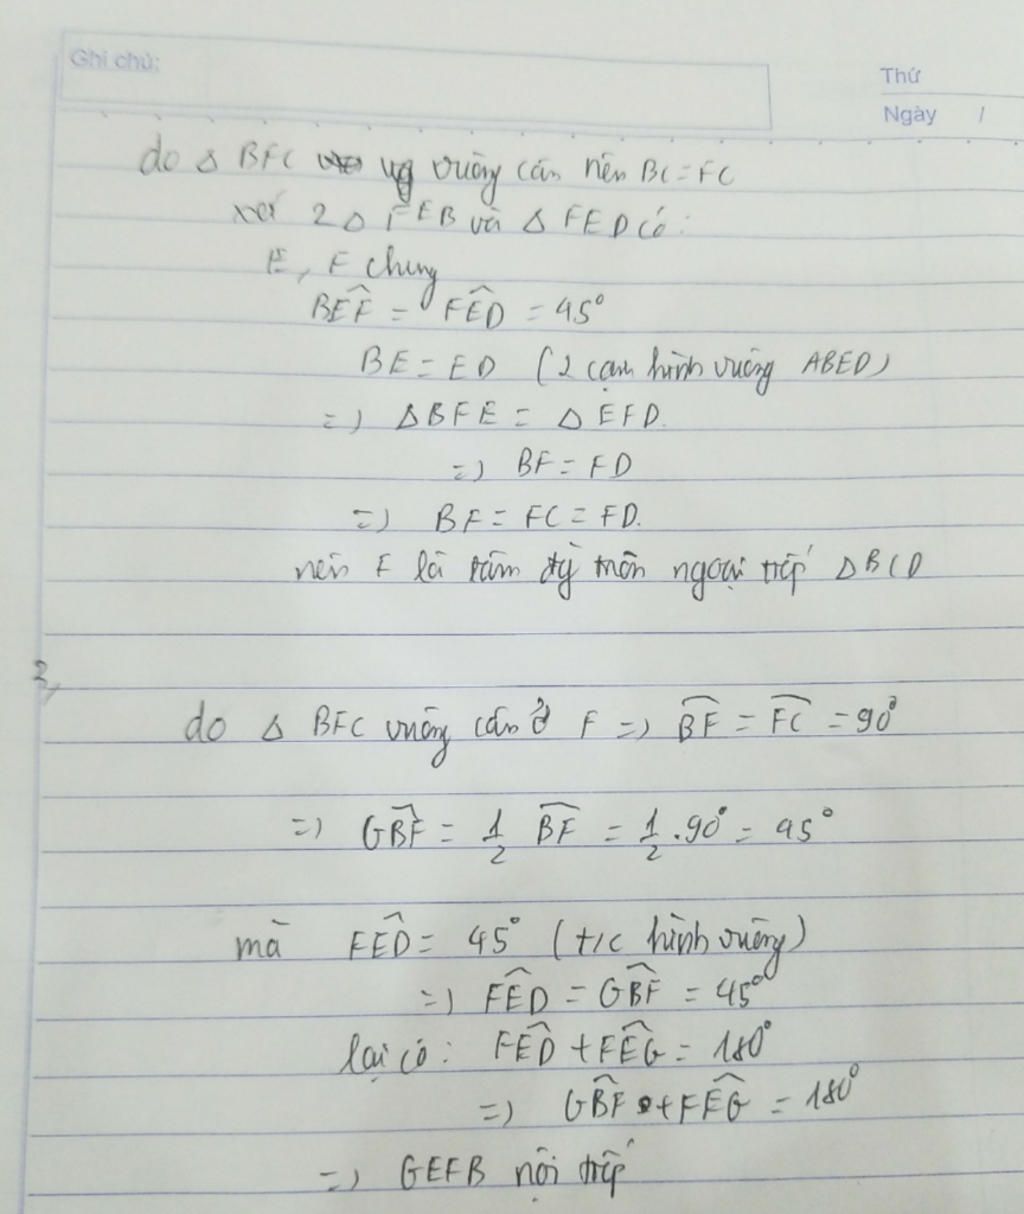 Ghi chú:
Thứ
Ngày /
do Δ BFC vuông cân nên BC = FC
xét 2 Δ FEB và Δ FED có:
E, F chung
BEF̂ = FÊD = 45°
BE = ED (2 cạnh hình vuông ABED)
=) ΔBFE = Δ EFD.
=) BF = FD
=) BF = FC = FD.
nên F là tâm đg tròn ngoại tiếp ΔBCD
2,
do Δ BFC vuông cân ở F =) B͡F = F͡C = 90°
=) GB̂F = 1/2 B͡F = 1/2 . 90° = 45°
mà FÊD = 45° (t/c hình vuông)
=) FÊD = GB̂F = 45°
lại có: FÊD + FÊG = 180°
=) GB̂F + FÊG = 180°
=) GEFB nội tiếp